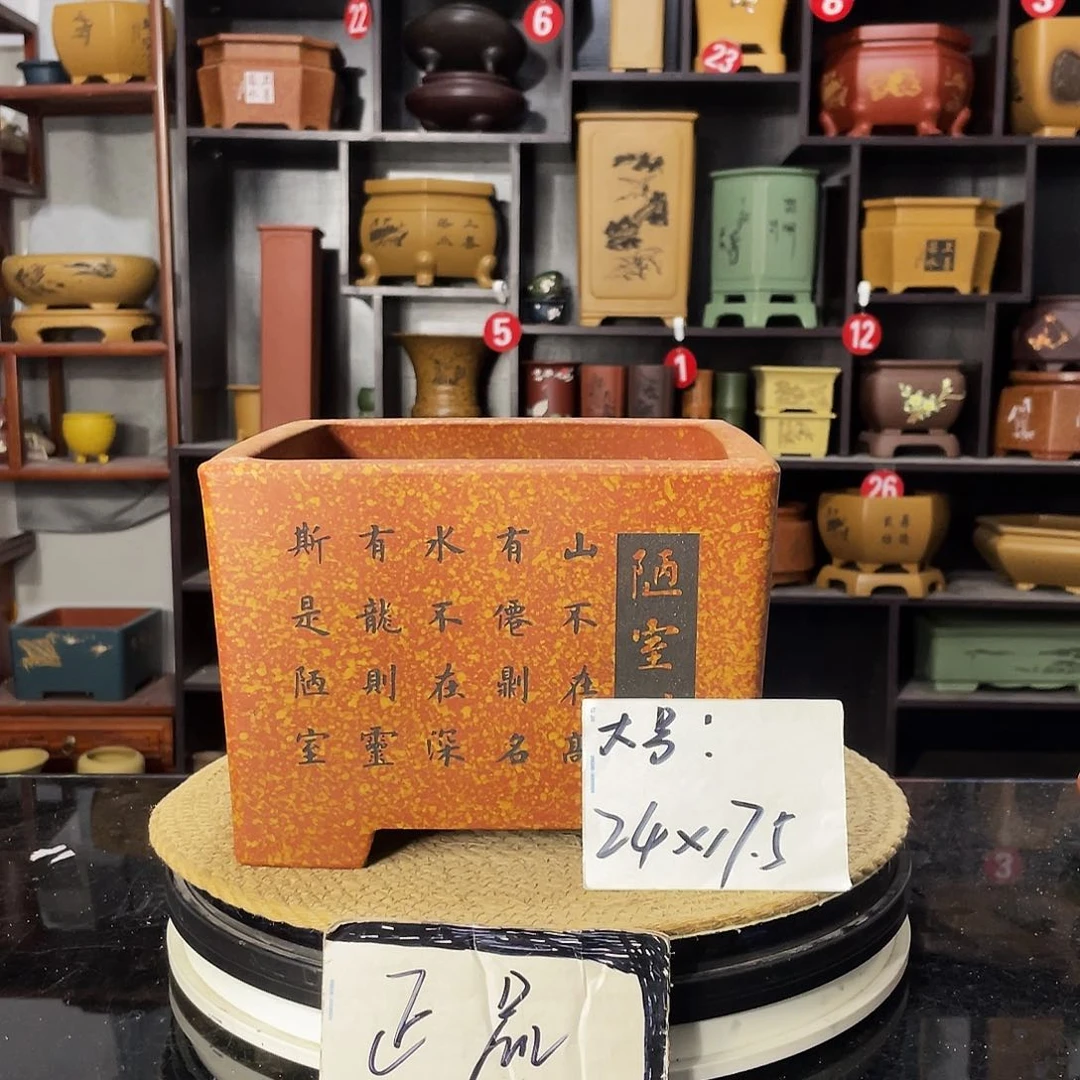 22
6
23
8
5
1
12
26
陋室
山不在高
有僊則名
水不在深
有龍則靈
斯是陋室
大号:
24×17.5
正品